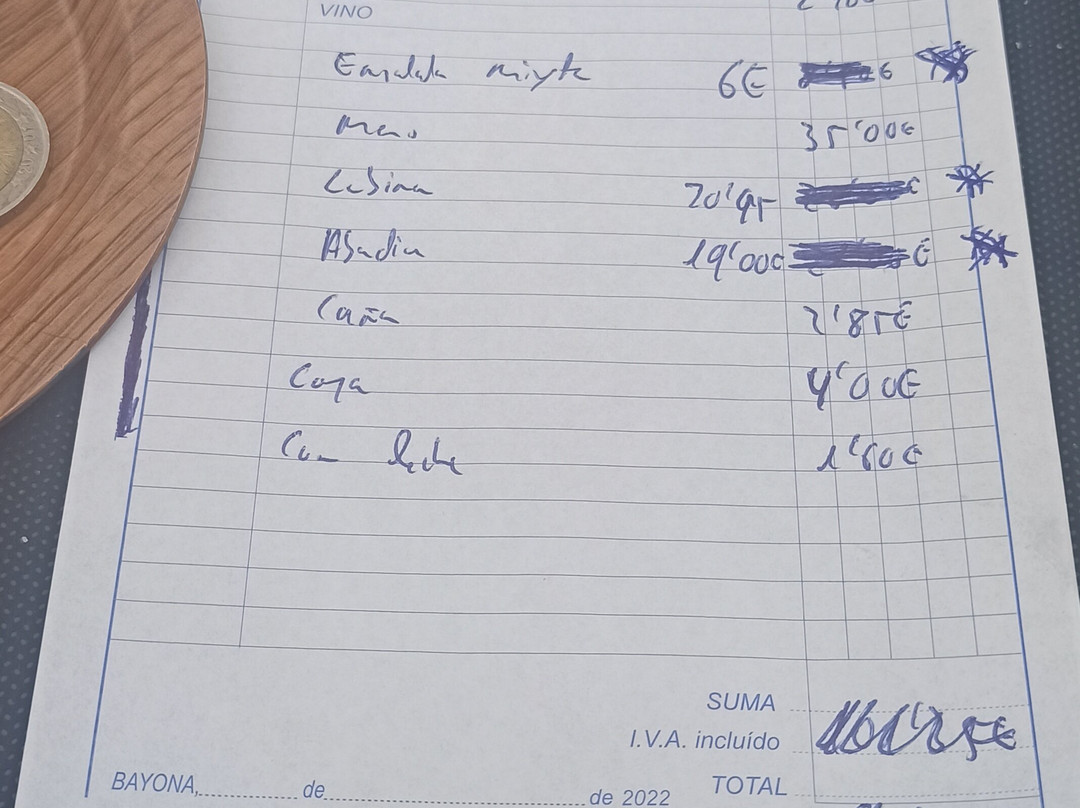 VINO
Ensalada mixta 6€
Mero 35'00€
Lubina 20'95
Abadia 19'00€ €
Caña 2'85€
Copa 4'00€
Con leche 1'60€
SUMA
I.V.A. incluído
TOTAL
BAYONA, de de 2022